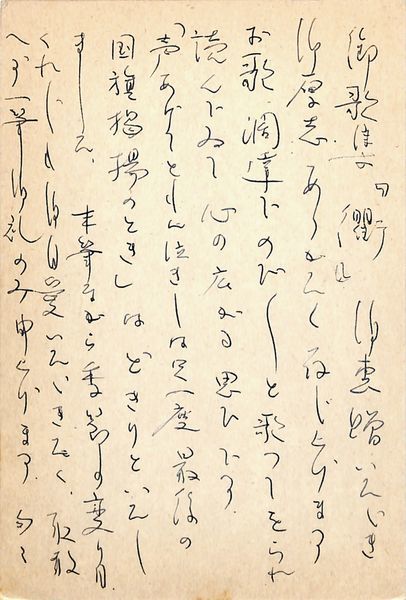 御歌集『衢』 御恵贈いただき
御厚志ありがたく存じ上げます
お歌、濶達でのびのびと歌つてをられ
読んでゐて心の広がる思ひです
「声あげてとりん泣きしは只一度最後の
国旗掲揚のとき」はどきりといたし
ました、 末筆ながら季節の変り目
くれぐれも御自愛いただきたく、取敢
へず一筆御礼のみ申上げます 匆々